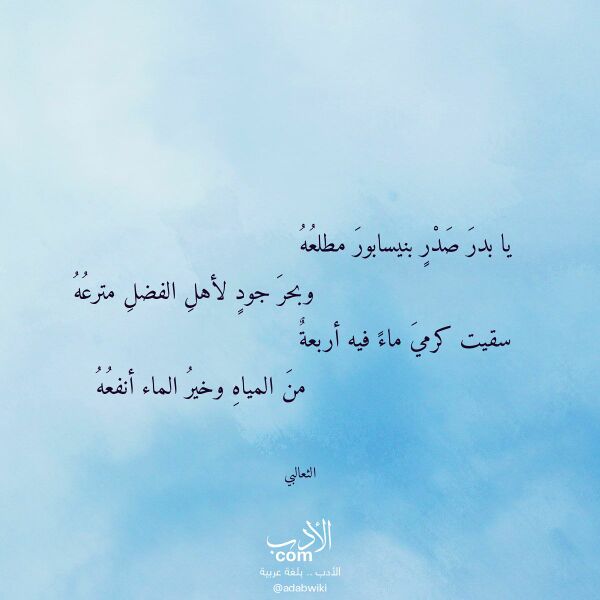 يا بدرَ صَدْرٍ بنيسابورَ مطلعُهُ
وبحرَ جودٍ لأهلِ الفضلِ مترعُهُ
سقيت كرميَ ماءً فيه أربعةٌ
منَ المياهِ وخيرُ الماء أنفعُهُ
الثعالبي
الأدب
com
الأدب .. بلغة عربية
@adabwiki